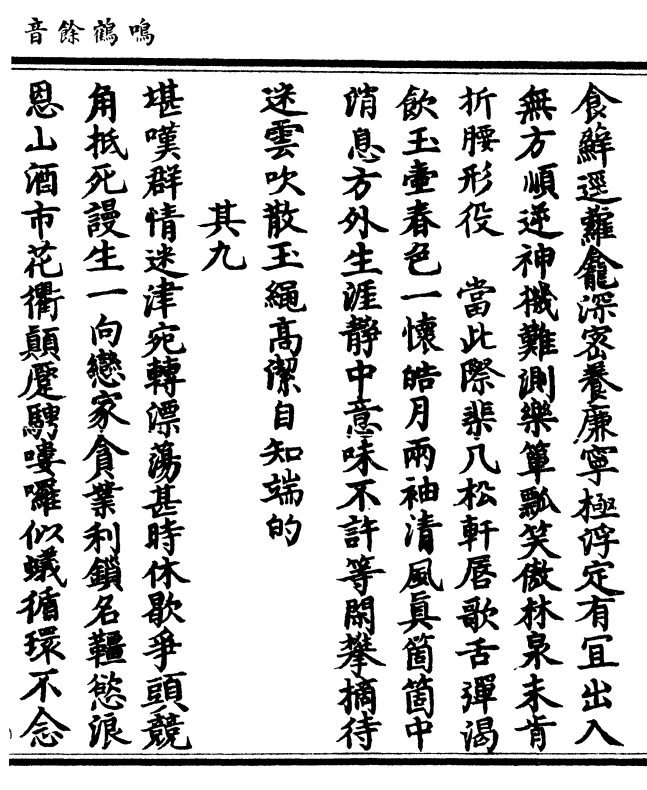 鳴鶴餘音
無方順逆神機難測樂簞瓢笑傲林泉未肯
折腰形役　當此際棐几松軒唇歌舌彈渴
飲玉壷春色一懷皓月兩袖清風真箇箇中
消息方外生涯靜中意味不許等閑攀摘待
迷雲吹散玉繩高潔自知端的
其九
堪嘆群情迷津宛轉漂蕩甚時休歇爭頭競
角抵死謾生一向戀家貪業利鎖名韁慾浪
恩山酒市花衢顛蹷騁嘍囉似蟻循環不念